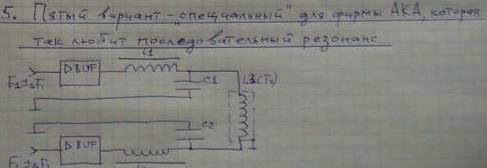 5. Пятый вариант - "специальный" для фирмы АКА, которая
так любит последовательный резонанс
L1
DBUF
C1
C2
DBUF